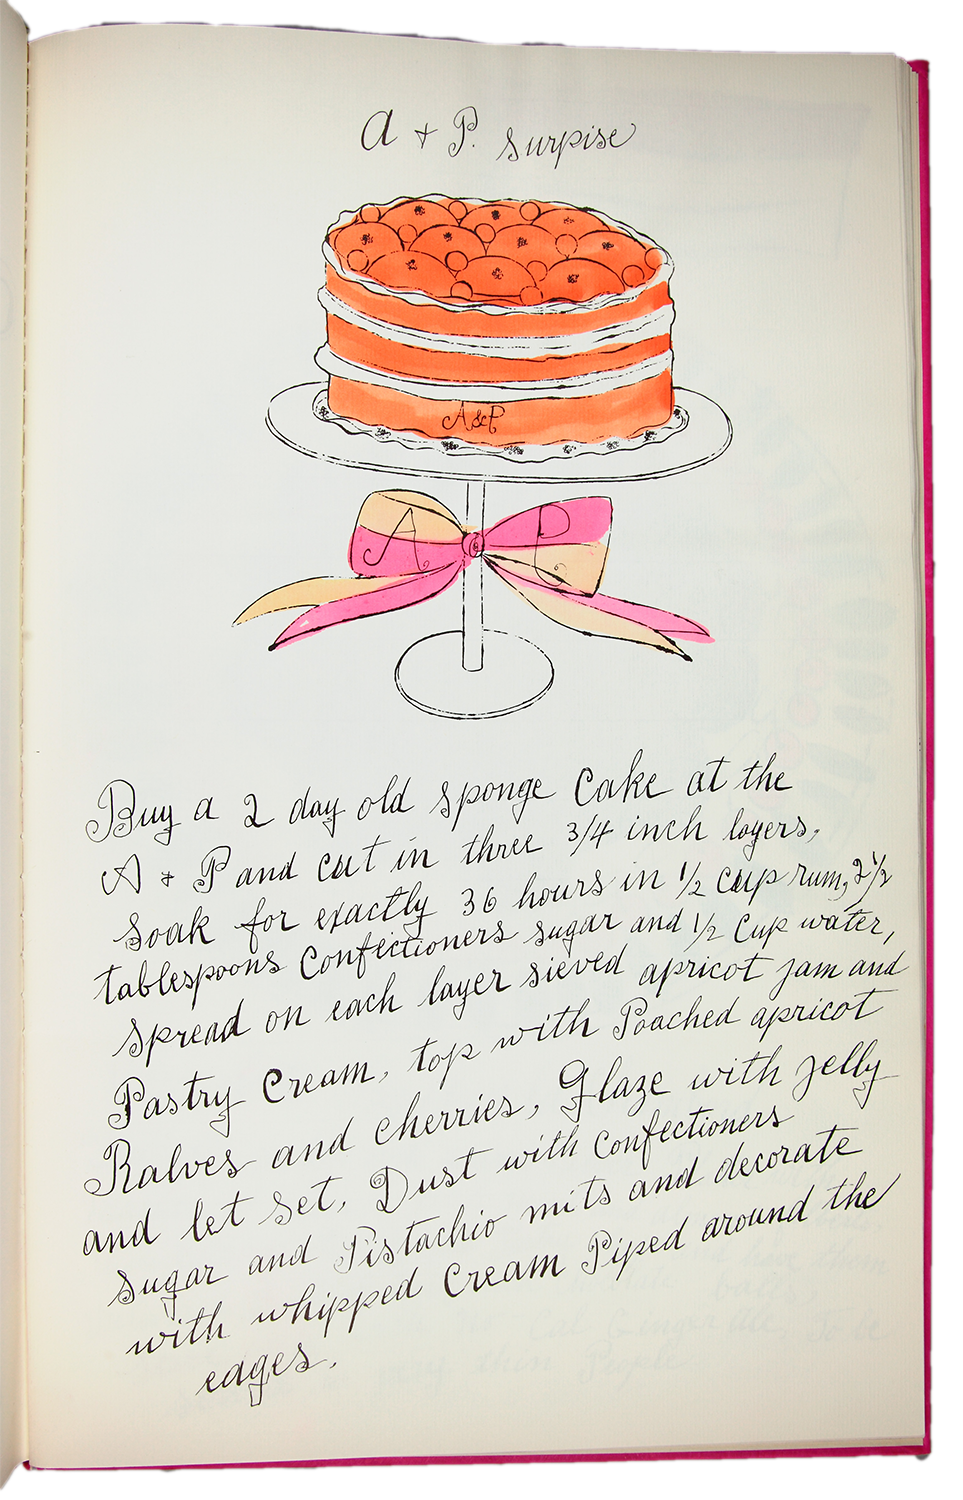 A + P. surpise
A&P
A P
Buy a 2 day old sponge Cake at the
A + P and cut in three 3/4 inch layers,
soak for exactly 36 hours in 1/2 cup rum, 2 1/2
tablespoons Confectioners sugar and 1/2 Cup water,
spread on each layer sieved apricot jam and
Pastry Cream, top with Poached apricot
Ralves and cherries, Glaze with jelly
and let set, Dust with confectioners
sugar and Pistachio nuts and decorate
with whipped Cream Piped around the
edges.